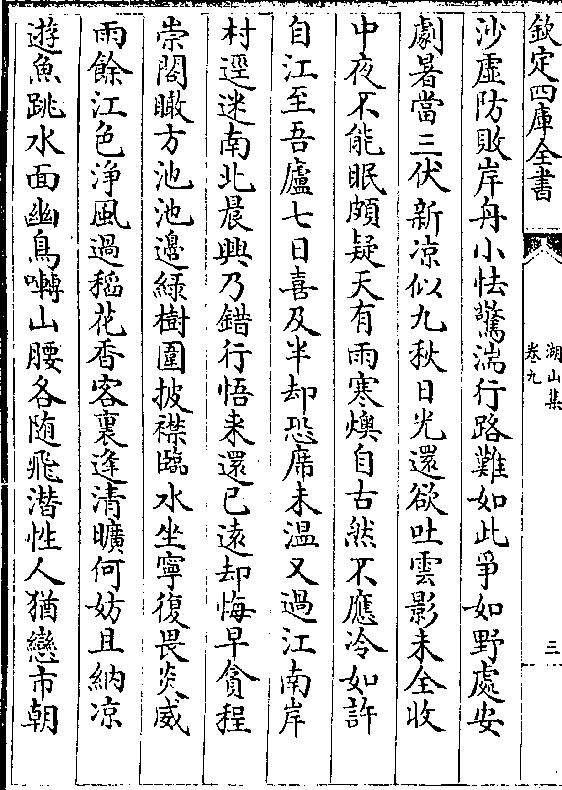 欽定四庫全書
湖山集
卷九
三
沙虛防敗岸舟小怯驚湍行路難如此爭如野處安
劇暑當三伏新凉似九秋日光還欲吐雲影未全收
中夜不能眠頗疑天有雨寒燠自古然不應冷如許
自江至吾廬七日喜及半却恐席未温又過江南岸
村逕迷南北晨興乃錯行悟來還已遠却悔早貪程
崇閣瞰方池池邊綠樹圍披襟臨水坐寧復畏炎威
雨餘江色淨風過稻花香客裏逢清曠何妨且納凉
遊魚跳水面幽鳥囀山腰各随飛潛性人猶戀市朝